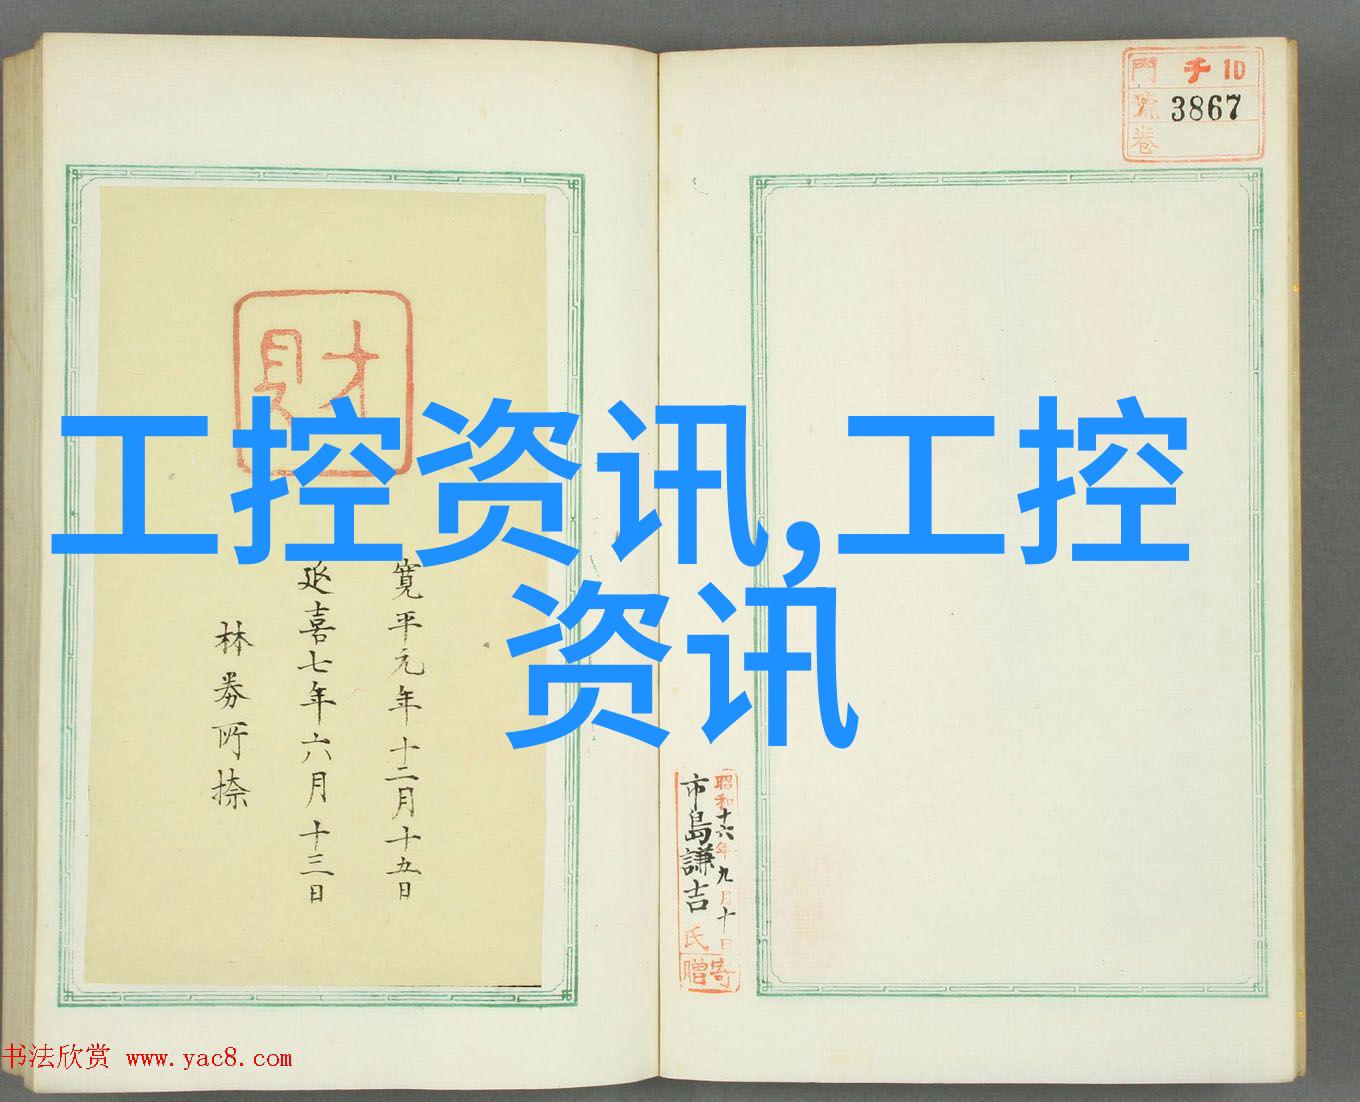 門 千 10
號 3867
卷
財
工控资讯,工控
资讯
寛平元年十二月十五日
延喜七年六月十三日
林
所捺
昭和十六年九月十日
市島謙吉氏寄贈
书法欣赏 www.yac8.com